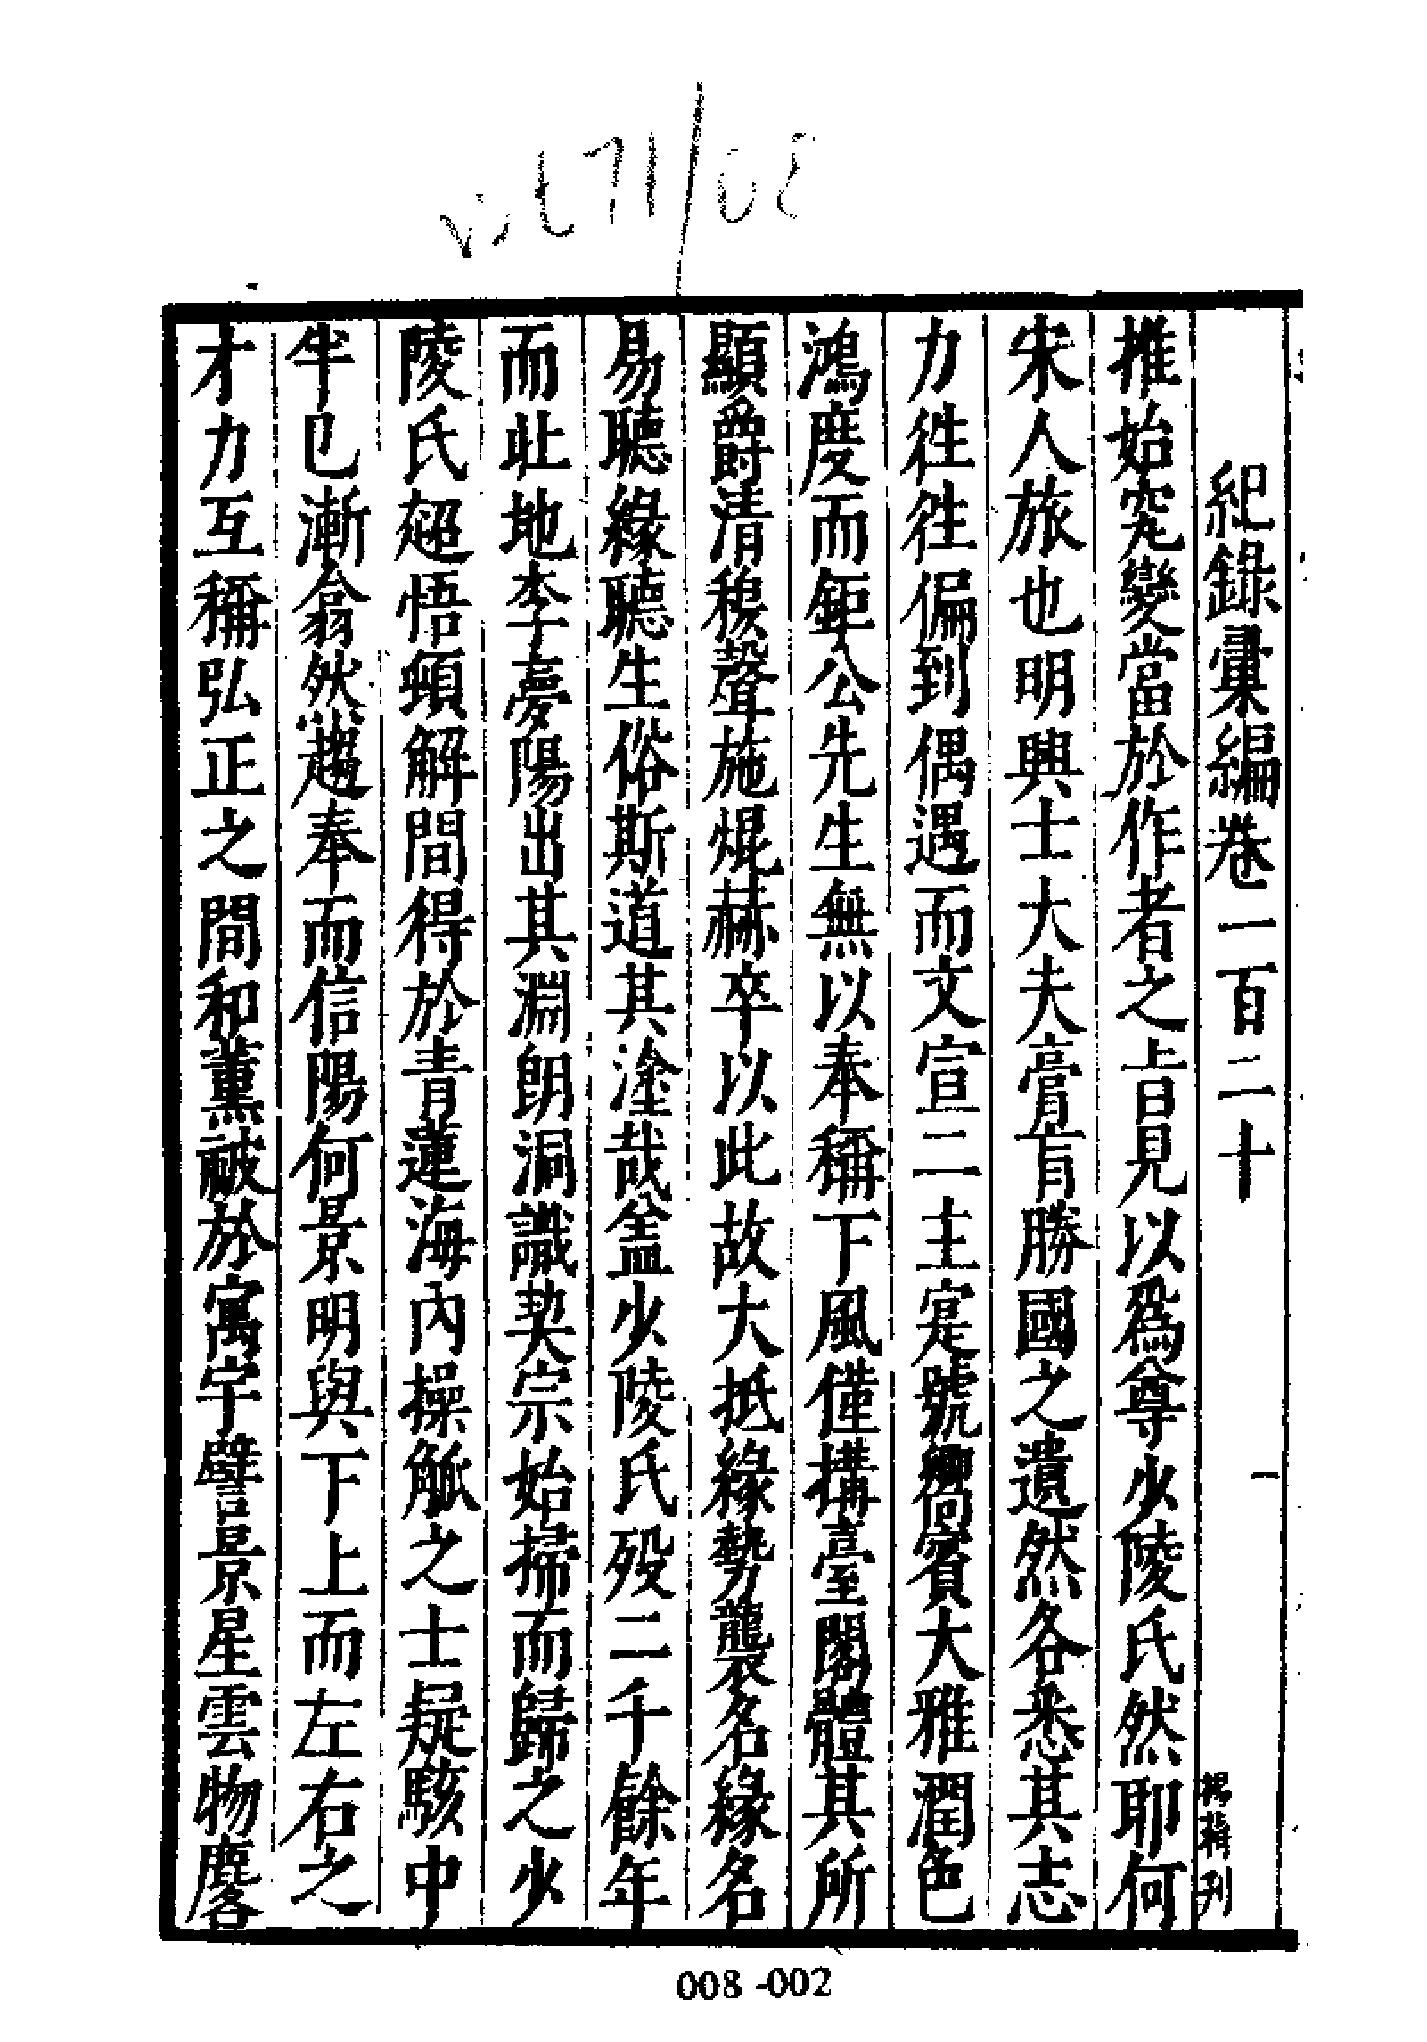 紀錄彙編卷一百二十 一
推始究變當於作者之旨見以爲尊少陵氏然耶何
宋人旅也明興士大夫膏肓勝國之遺然各悉其志
力徃徃偏到偶遇而文宣二主寔號卿賓大雅潤色
鴻度而鉅公先生無以奉稱下風僅搆臺閣體其所
顯爵清穆聲施焜赫卒以此故大抵緣勢襲名緣名
易聽緣聽生俗斯道其塗哉盍少陵氏歿二千餘年
而北地李夢陽出其淵朗洞識契宗始掃而歸之少
陵氏超悟頓解間得於青蓮海內操觚之士疑駭中
半已漸翕然趨奉而信陽何景明與下上而左右之
才力互稱弘正之間和薰被於寓宇譬景星雲物麐
008-002